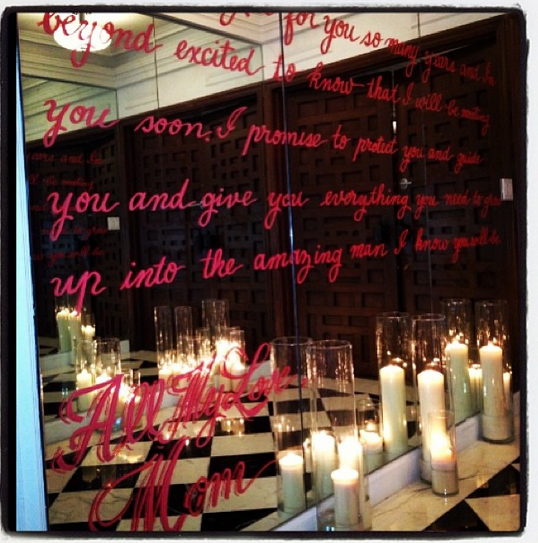 for you so many years and
beyond excited to know that I will be meeting
you soon. I promise to protect you and guide
you and give you everything you need to grow
up into the amazing man I know you will be
All My Love
Mom